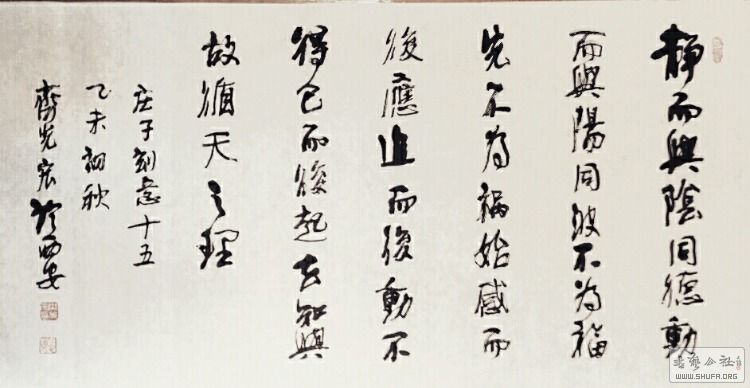 靜而與陰同德動
而與陽同波不為福
先不為禍始感而
後應迫而後動不
得已而後起去知與
故循天之理
庄子刻意十五
乙未初秋
齊光宏於西安
WWW.SHUFA.ORG